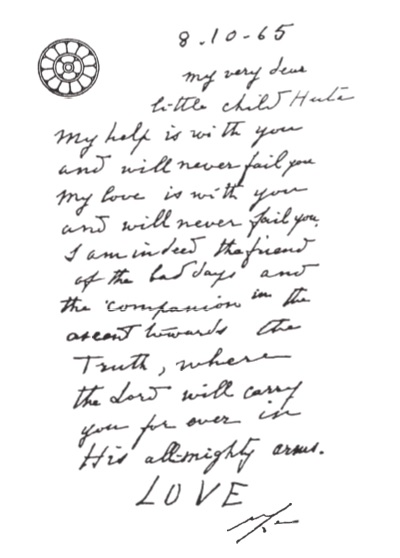 8.10-65
my very dear
little child Huta
My help is with you
and will never fail you
My love is with you
and will never fail you.
I am indeed the friend
of the bad days and
the companion in the
ascent towards the
Truth, where
the Lord will carry
you for ever in
His all-mighty arms.
LOVE